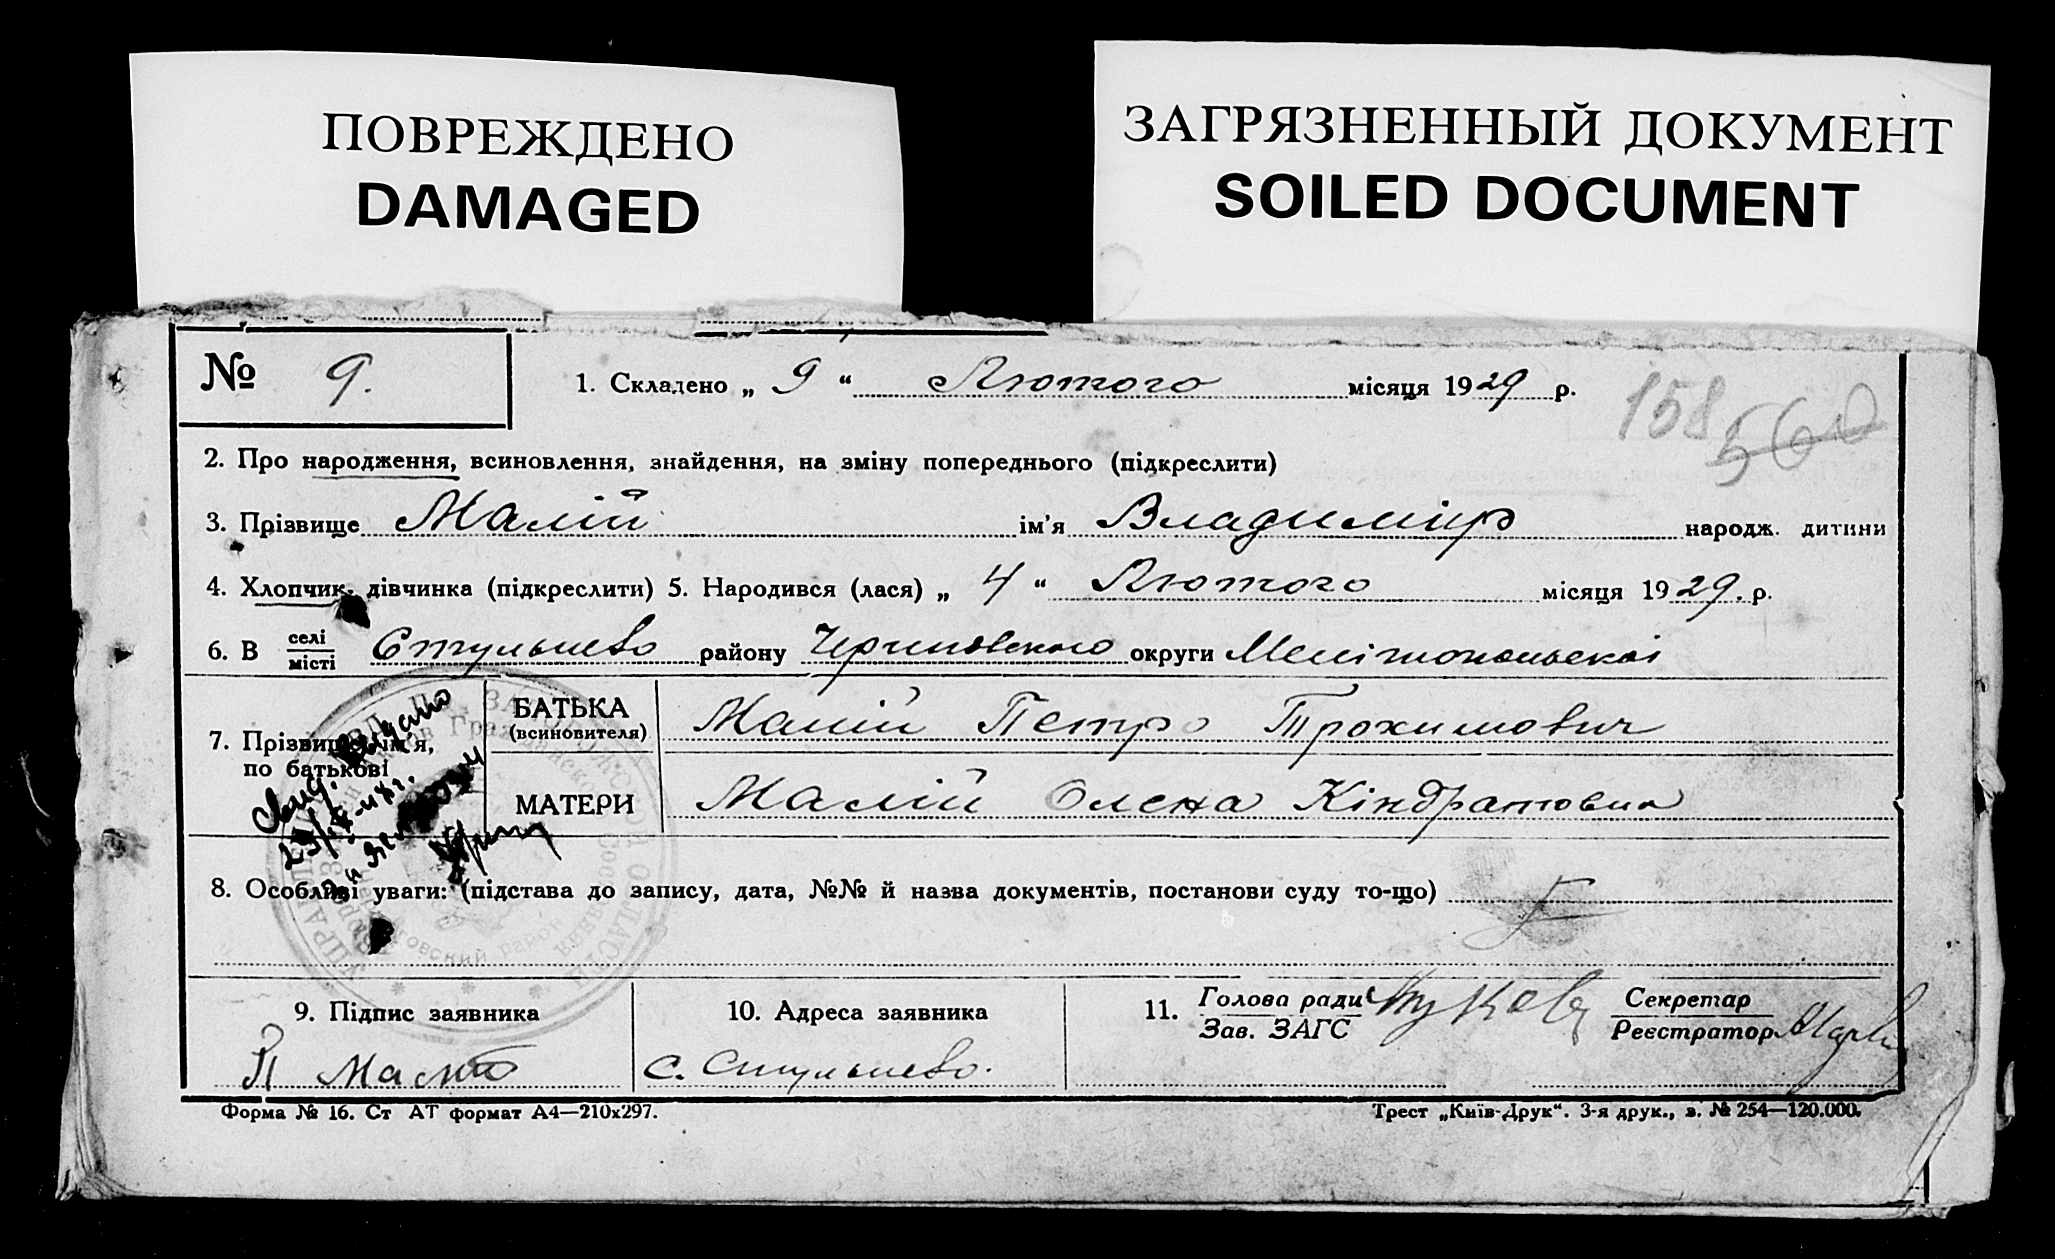 ПОВРЕЖДЕНО
DAMAGED
ЗАГРЯЗНЕННЫЙ ДОКУМЕНТ
SOILED DOCUMENT
№ 9. 1. Складено „ 9 “ Лютого місяця 1929 р.
158 560
2. Про народження, всиновлення, знайдення, на зміну попереднього (підкреслити)
3. Прізвище Малій ім'я Владимір народж. дитини
4. Хлопчик, дівчинка (підкреслити) 5. Народився (лася) „ 4 “ Лютого місяця 1929. р.
6. В селі/місті Стульнево району Черниговского округи Мелітопольскаі
7. Прізвище, ім'я, по батькові
БАТЬКА (всиновителя) Малій Петро Трохимович
МАТЕРИ Малій Олена Кіндратовна
Свид. Выдано
8. Особливі уваги: (підстава до запису, дата, №№ й назва документів, постанови суду то-що)
9. Підпис заявника
П Малий
10. Адреса заявника
с. Стульнево.
11. Голова ради
Зав. ЗАГС
Секретар
Реєстратор
Форма № 16. Ст АТ формат А4—210х297.
Трест „Київ-Друк“. 3-я друк., з. № 254—120.000.